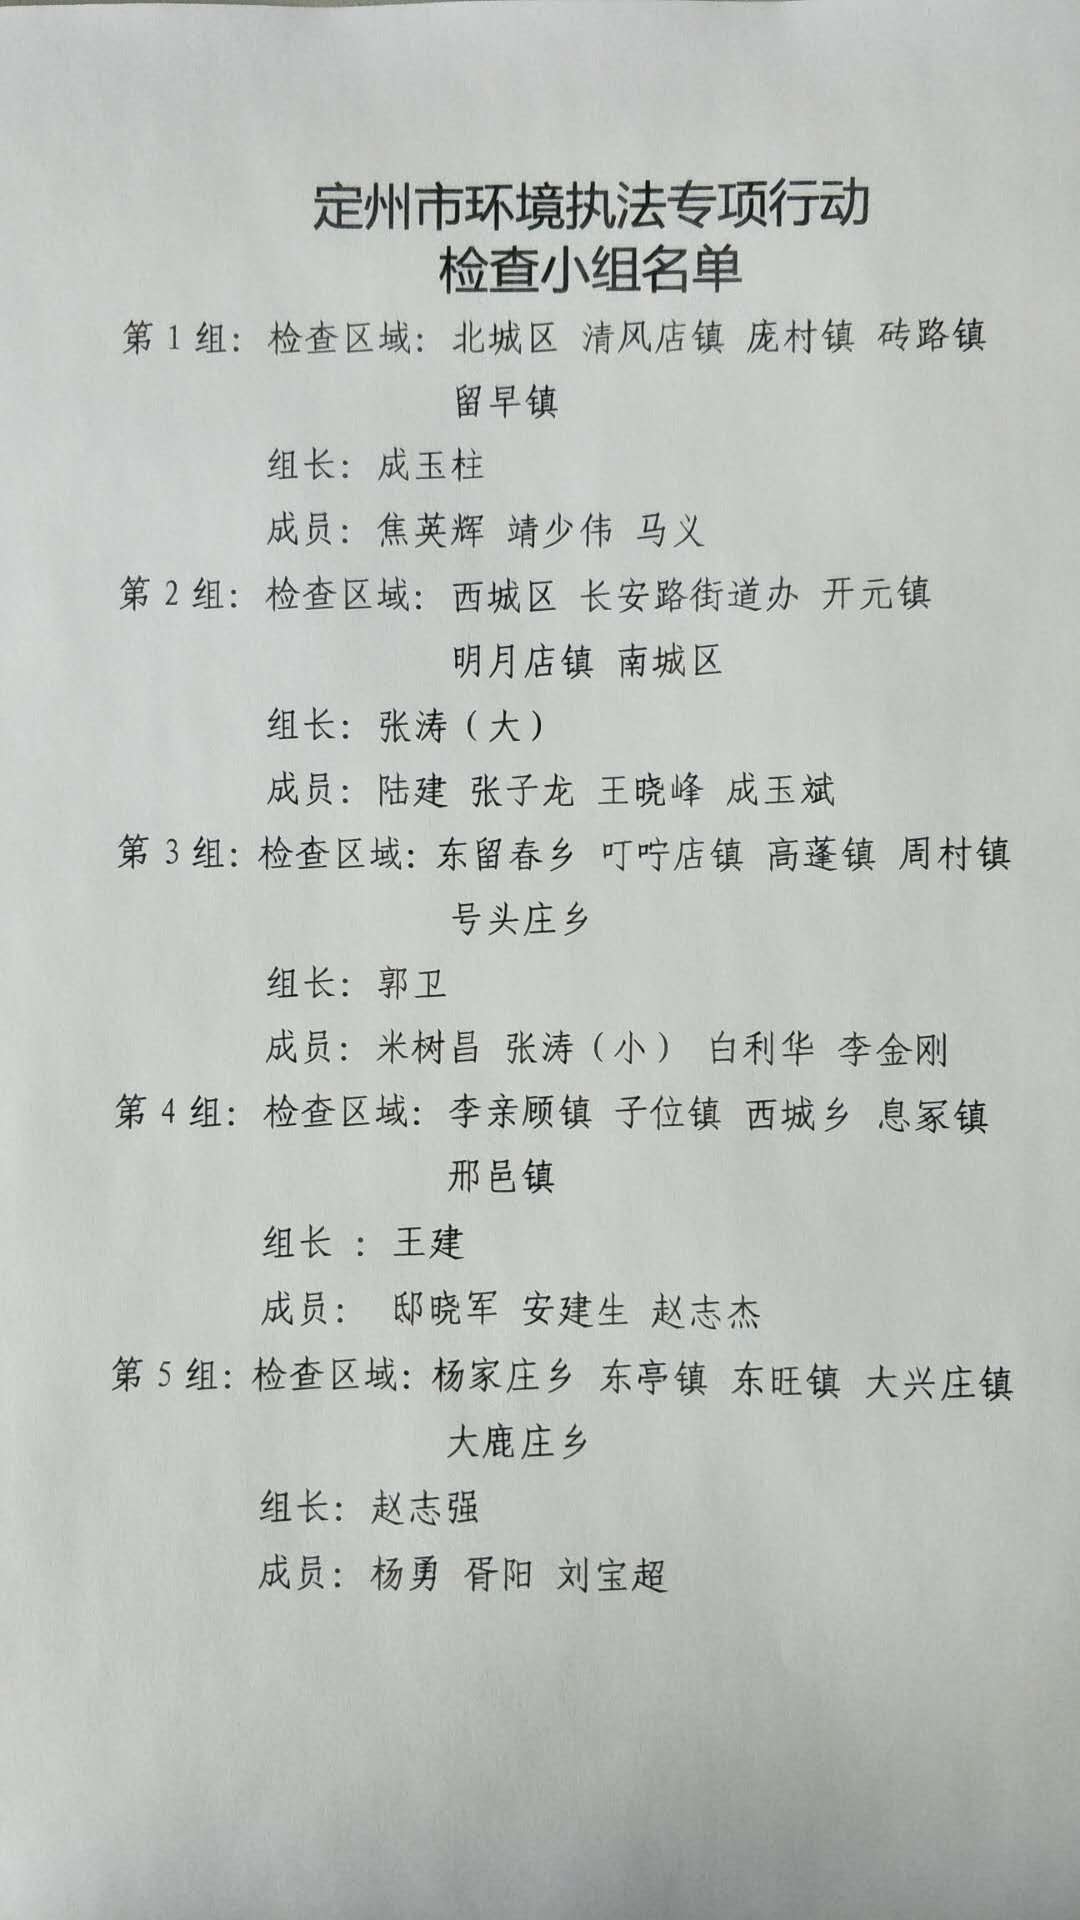 定州市环境执法专项行动
检查小组名单
第 1 组：检查区域：北城区 清风店镇 庞村镇 砖路镇
留早镇
组长：成玉柱
成员：焦英辉 靖少伟 马义
第 2 组：检查区域：西城区 长安路街道办 开元镇
明月店镇 南城区
组长：张涛（大）
成员：陆建 张子龙 王晓峰 成玉斌
第 3 组：检查区域：东留春乡 叮咛店镇 高蓬镇 周村镇
号头庄乡
组长：郭卫
成员：米树昌 张涛（小） 白利华 李金刚
第 4 组：检查区域：李亲顾镇 子位镇 西城乡 息冢镇
邢邑镇
组长 ：王建
成员： 邸晓军 安建生 赵志杰
第 5 组：检查区域：杨家庄乡 东亭镇 东旺镇 大兴庄镇
大鹿庄乡
组长：赵志强
成员：杨勇 胥阳 刘宝超